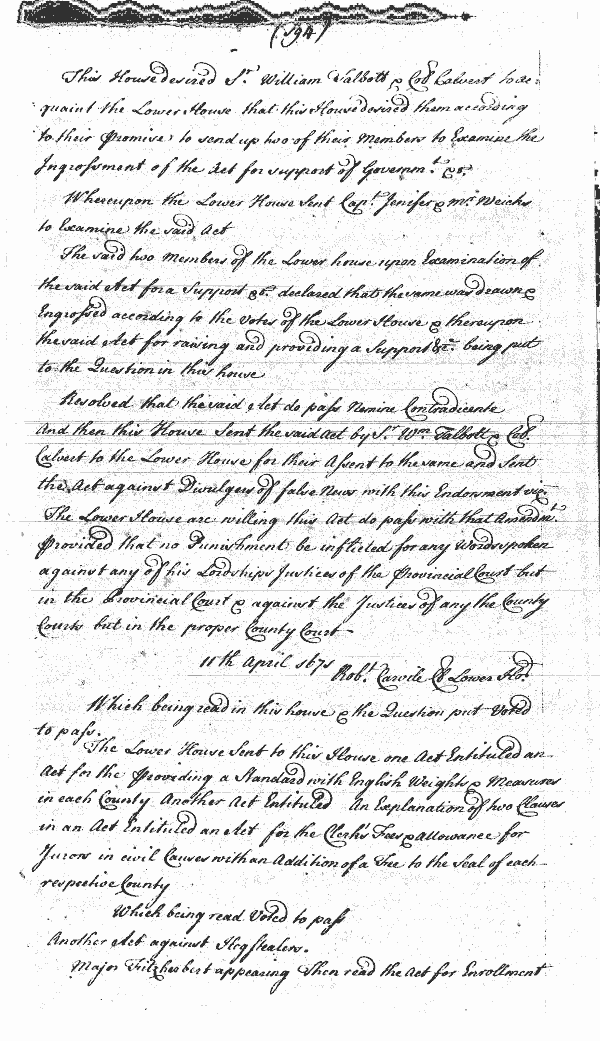 (194)
This House desired Sr. William Talbott & Col Calvert to ac:
quaint the Lower House that this House desired them according
to their Promise to send up two of their Members to Examine the
Ingrossment of the Act for support of Governmt. &c.
Whereupon the Lower House Sent Capt. Jenifer & Mr Weicks
to Examine the said Act
The said two Members of the Lower house upon Examination of
the said Act for a Support &c. declared that the same was drawn &
Engrossed according to the Votes of the Lower House & thereupon
the said Act for raising and providing a Support &c. being put
to the Question in this house
Resolved that the said Act do pass Nemine Contradicente
And then this House Sent the said Act by Sr. Wm. Talbott & Col.
Calvert to the Lower House for their Assent to the same and Sent
the Act against Divulgers of false News with this Endorsment viz.
The Lower House are willing this Act do pass with that Amendmt.
Provided that no Punishment be inflicted for any Words spoken
against any of his Lordships Justices of the Provincial Court but
in the Provincial Court & against the Justices of any the County
Courts but in the proper County Court
11th April 1671 Robt. Carvile Cl Lower Ho.
Which being read in this house & the Question put Voted
to pass.
The Lower House Sent to this House one Act Entituled an
Act for the Providing a Standard with English Weights & Measures
in each County Another Act Entituled An Explanation of two Clauses
in an Act Entituled an Act for the Clerks Fees & allowance for
Jurors in civil Causes with an Addition of a Fee to the Seal of each
respective County
Which being read Voted to pass
Another Act against Hogstealers.
Major Fitzherbert appearing Then read the Act for Enrollment